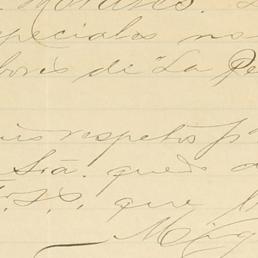 Morales.
especiales no
de "La Pe
respetos p
Sra. quedo
S.S., que b
Mig